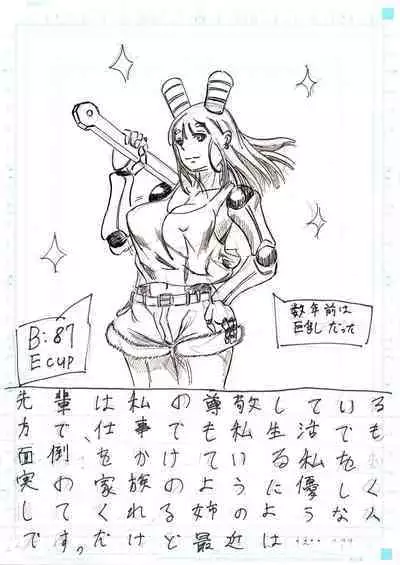 数年前は
巨乳だった
B:87
E cup
先輩は私の尊敬している
方で、仕事でも私生活でも
面倒をかけている私を
実の家族のように優しく
してくれる姉のような人
です。だけど最近は